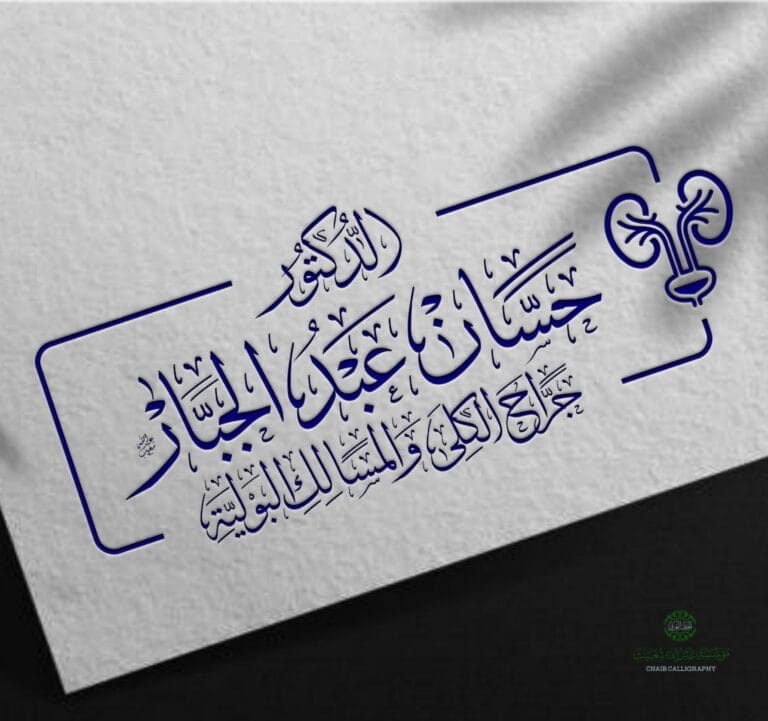 الدُّكتُور
حَسَّانْ عَبْدُ الجَبَّارْ
جَرَّاحُ الكِلِى وَالمَسَالِكِ البَوْلِيَّةِ
CHAIB CALLIGRAPHY